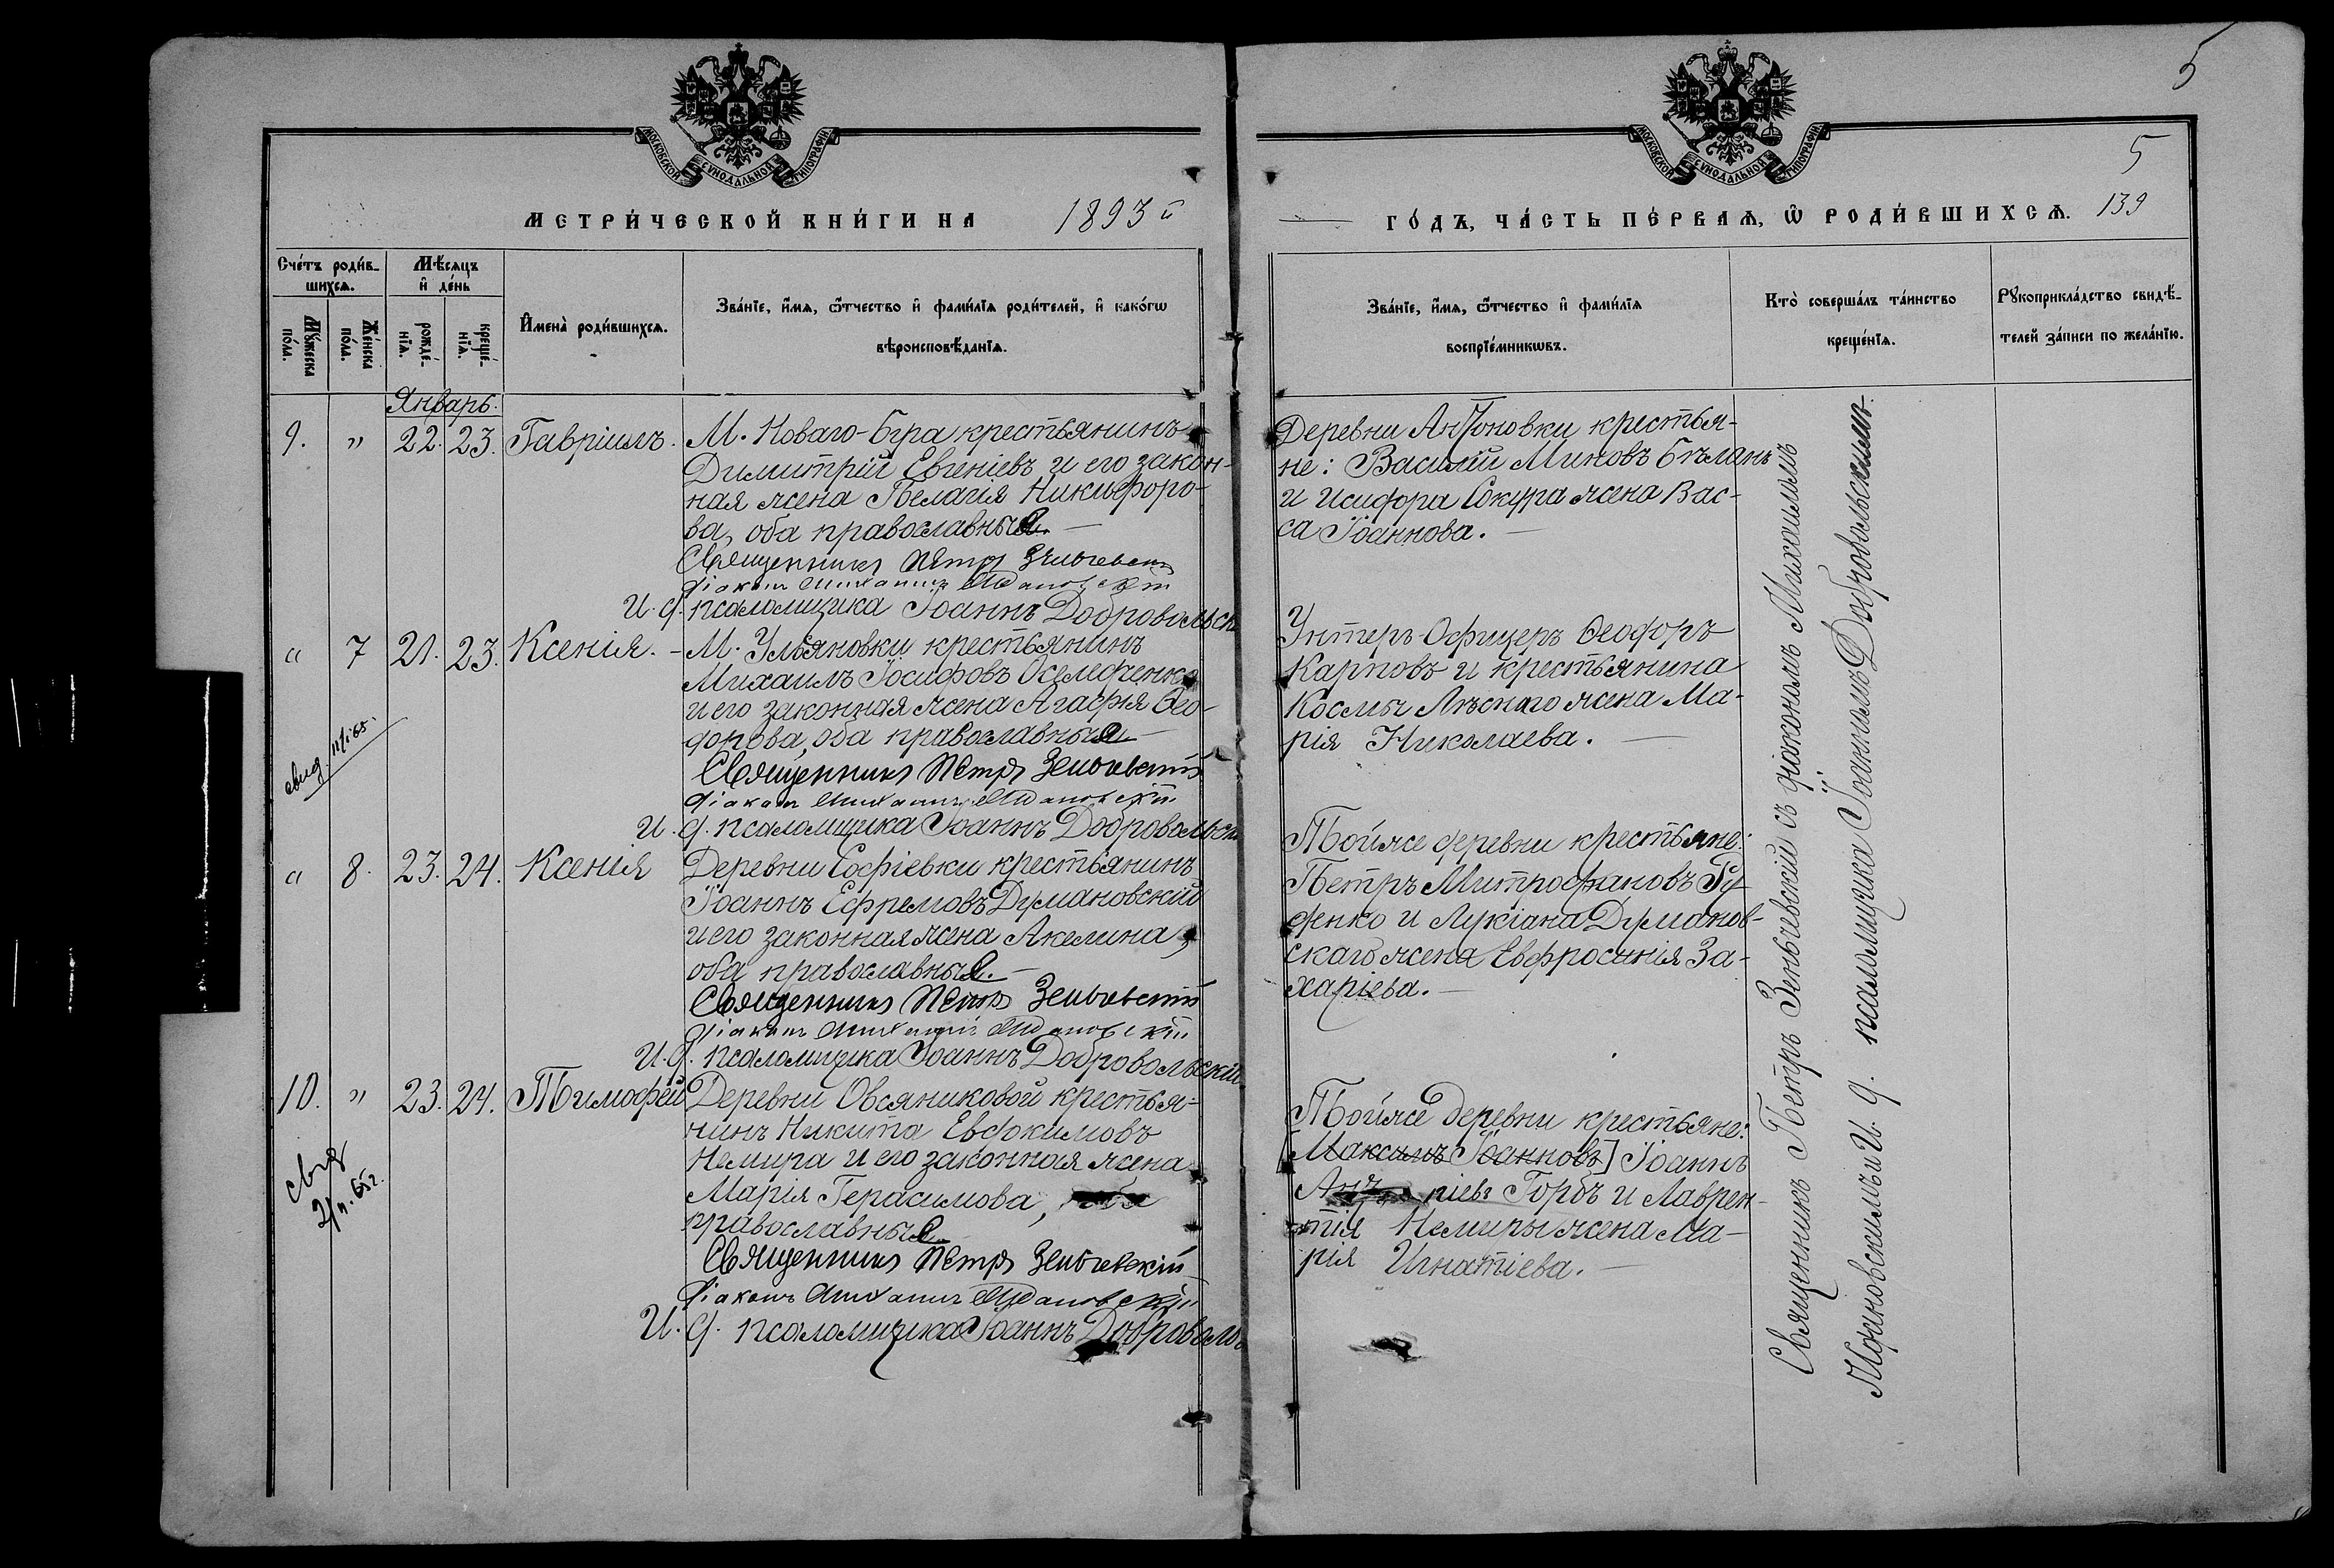 5
МОСКОВСКОЙ СѴНОДАЛЬНОЙ ТИПОГРАФІИ
МОСКОВСКОЙ СѴНОДАЛЬНОЙ ТИПОГРАФІИ
5
МЕТРИ́ЧЕСКОЙ КНИ́ГИ НА 1893 й
ГО́ДЪ, ЧА́СТЬ ПЕ́РВАѦ, Ѡ҆ РОДИ́ВШИХСѦ. 139
Сче́тъ роди́в-
шихсѧ.
Мꙋ́жеска
по́ла.
Же́нска
по́ла.
Мѣ́сѧцъ
и҆ де́нь
рожде́-
нїѧ.
креще́-
нїѧ.
И҆мена̀ роди́вшихсѧ.
Зва́нїе, и҆́мѧ, ѻ҆́тчество и҆ фами́лїѧ роди́телей, и҆ како́гѡ
вѣроисповѣ́данїѧ.
Зва́нїе, и҆́мѧ, ѻ҆́тчество и҆ фами́лїѧ
воспрїе́мникѡвъ.
Кто̀ соверша́лъ та́инство
креще́нїѧ.
Рꙋкоприкла́дство свидѣ́-
телей за́писи по жела́нїю.
Январь.
9. " 22. 23. Гавріилъ.
М. Новаго-Бгра крестьянинъ
Димитрій Евгеніевъ и его закон-
ная жена Пелагія Никифоро-
ва, оба православные
Священникъ Петръ Зеньчевскій
Діаконъ Михаилъ
И. д. псаломщика Іоаннъ Добровольск
Деревни Антоновки крестья-
не: Василій Миновъ Бѣланъ
и Исидора Сокура жена Вас-
са Іоаннова.
" 7 21. 23. Ксенія.
М. Ульяновки крестьянинъ
Михаилъ Іосифовъ Оселедченко
и его законная жена Агафія Ѳео-
дорова, оба православные
Священникъ Петръ Зеньчевскій
Діаконъ Михаилъ
И. д. псаломщика Іоаннъ Добровольск
Унтеръ-Офицеръ Ѳеодоръ
Карповъ и крестьянина
Космы Лѣснаго жена Ма-
рія Николаева.
свид. 11/I 65.
" 8. 23. 24. Ксенія
Деревни Софіевки крестьянинъ
Іоаннъ Ефремовъ Думановскій
и его законная жена Акелина,
оба православные.
Священникъ Петръ Зеньчевскій
Діаконъ Михаилъ
И. д. псаломщика Іоаннъ Добровольскій
Той же деревни крестьяне:
Петръ Митрофановъ Гу-
денко и Лукіана Думанов-
скаго жена Евфросинія За-
харіева.
10. " 23. 24. Тимофей
Деревни Овсяниковой крестья-
нинъ Никита Евдокимовъ
Немира и его законная жена
Марія Герасимова, оба
православные
Священникъ Петръ Зеньчевскій
Діаконъ Михаилъ
И. д. псаломщика Іоаннъ Доброволь
Той же деревни крестьяне:
[Максимъ Іоанновъ] Іоаннъ
Горбъ и Лаврен-
тія Немиры жена Ма-
рія Игнатіева.
свид
65 г.
Священникъ Петръ Зеньчевскій съ діакономъ Михаиломъ
и И. д. псаломщика Іоанномъ Добровольскимъ.